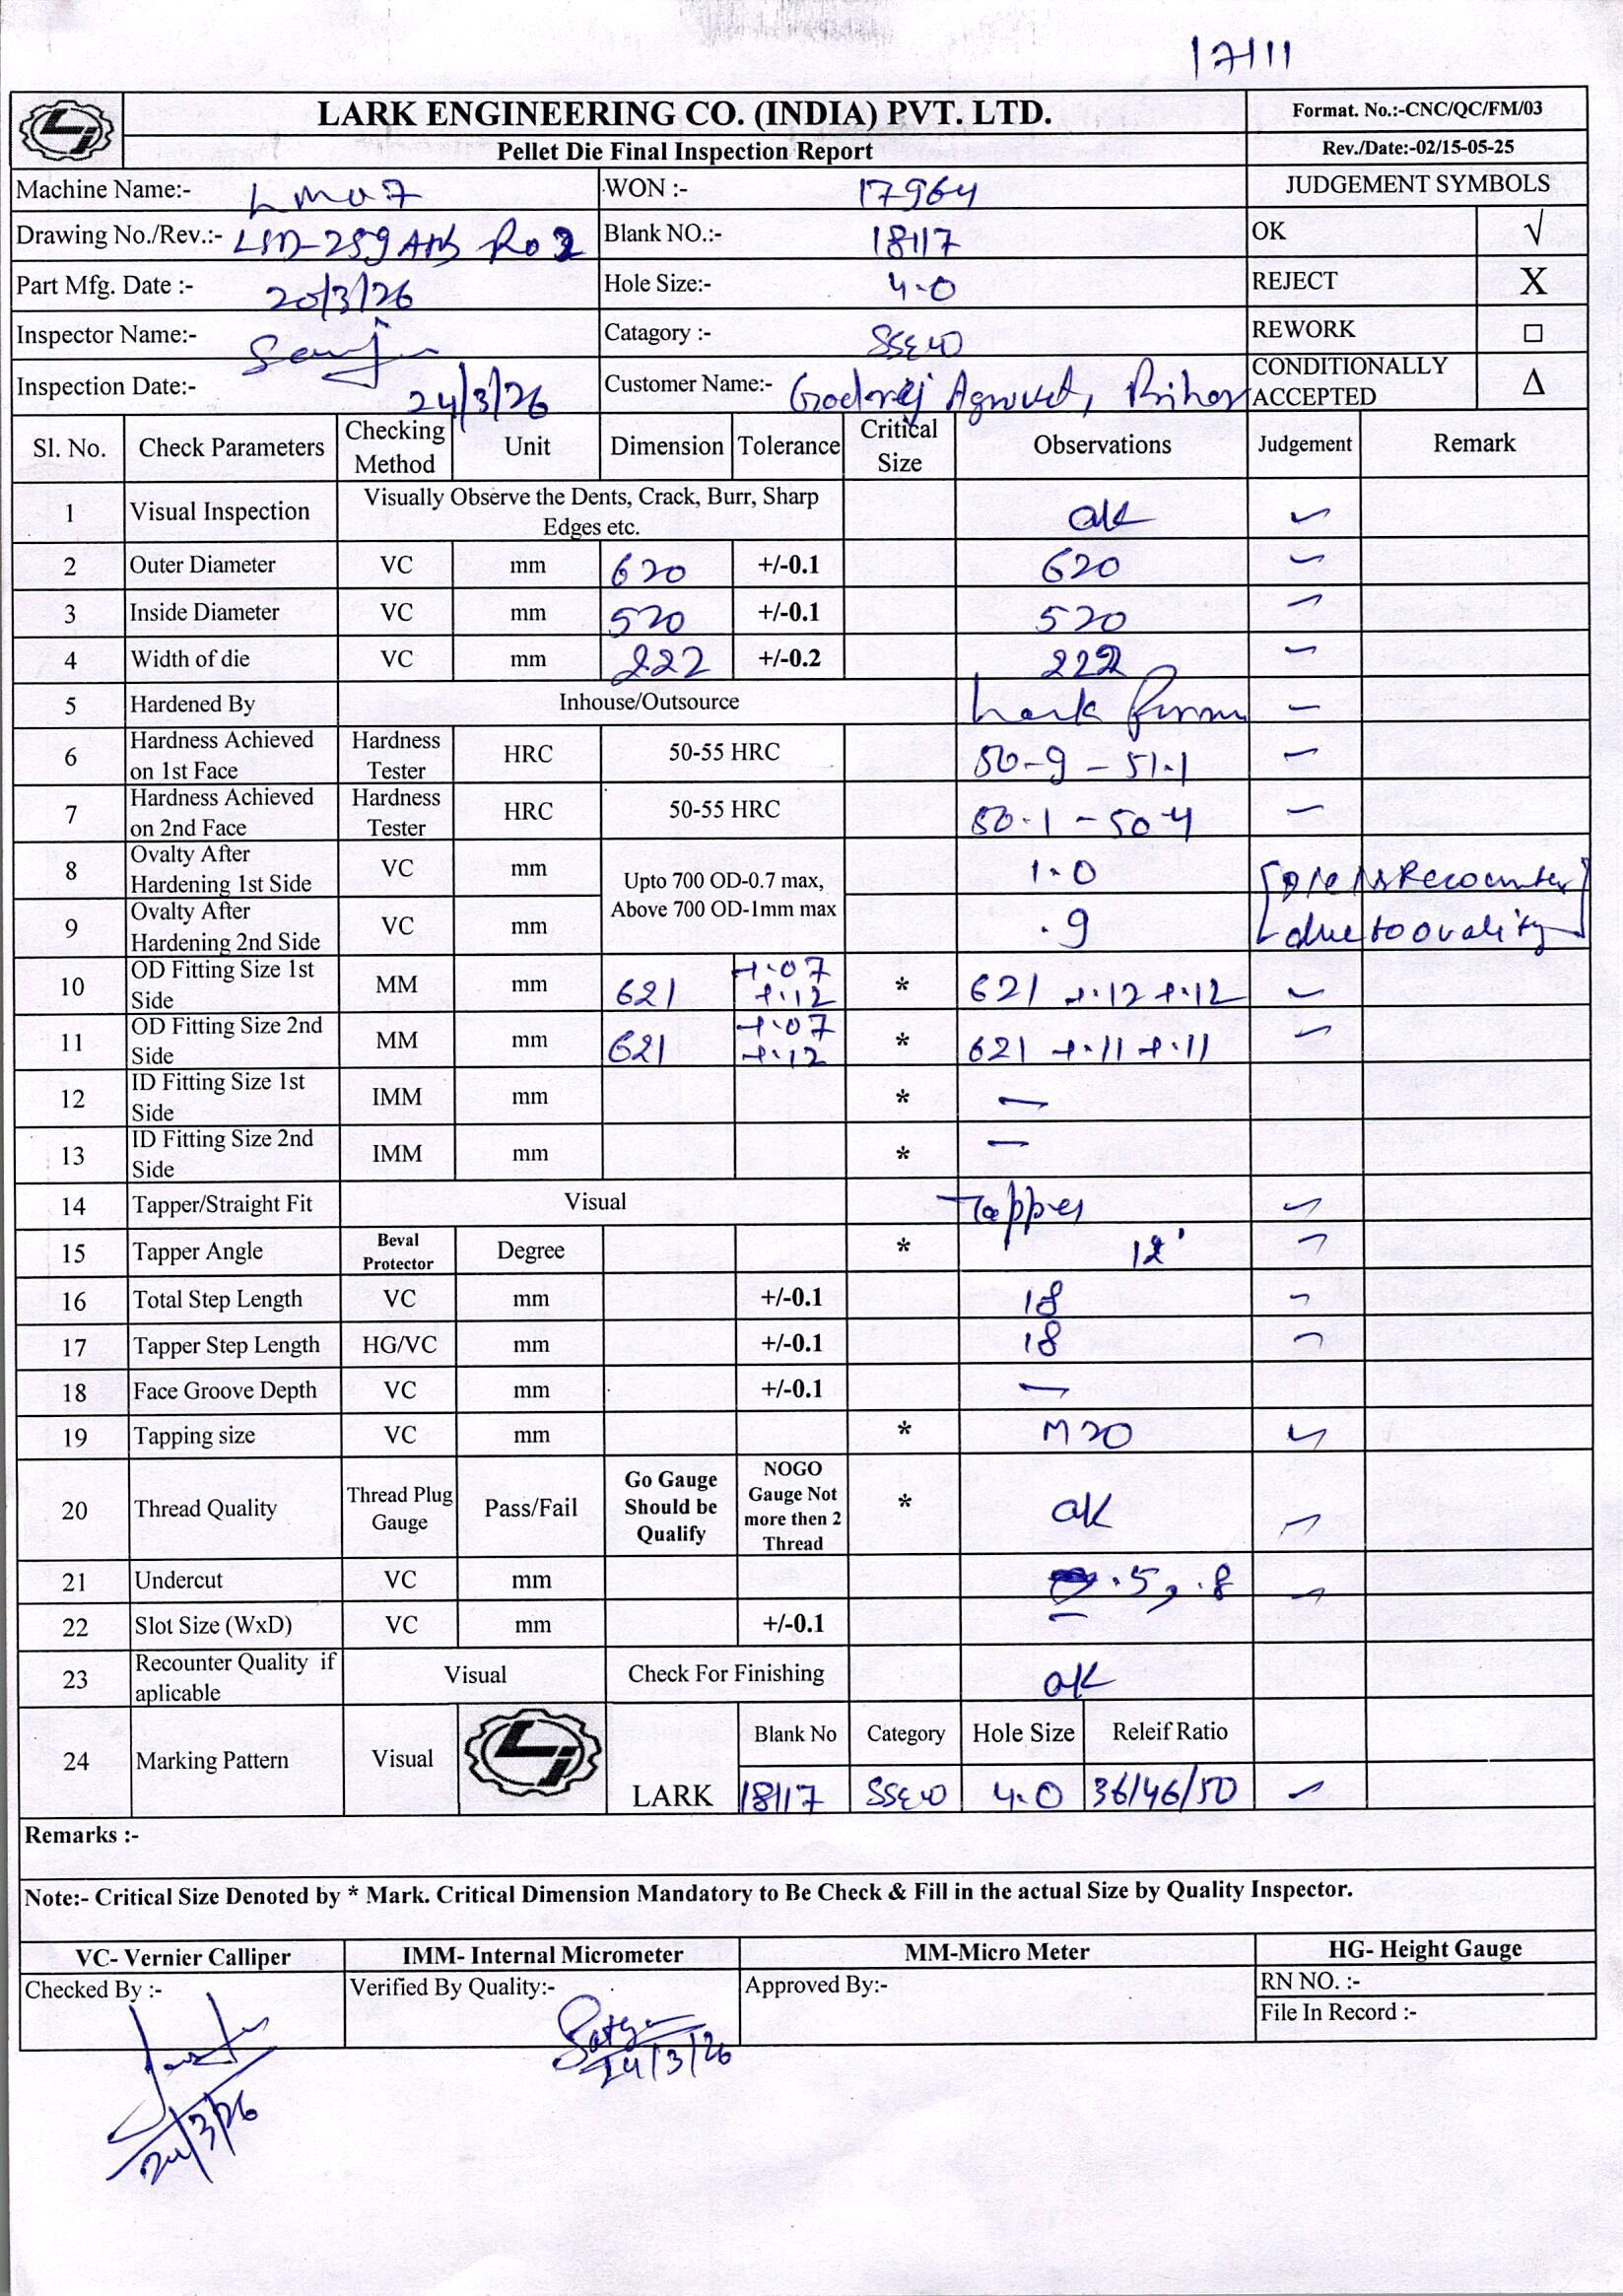 17111
LARK ENGINEERING CO. (INDIA) PVT. LTD.
Format. No.:-CNC/QC/FM/03
Pellet Die Final Inspection Report
Rev./Date:-02/15-05-25
Machine Name:- WON :- 17964 JUDGEMENT SYMBOLS
Drawing No./Rev.:- Blank NO.:- 18117 OK √
Part Mfg. Date :- 20/3/26 Hole Size:- 4.0 REJECT X
Inspector Name:- Catagory :- REWORK □
Inspection Date:- 24/3/26 Customer Name:- Godrej Agrovet, Bihar CONDITIONALLY ACCEPTED Δ
Sl. No. Check Parameters Checking Method Unit Dimension Tolerance Critical Size Observations Judgement Remark
1 Visual Inspection Visually Observe the Dents, Crack, Burr, Sharp Edges etc. ok ✓
2 Outer Diameter VC mm 620 +/-0.1 620 ✓
3 Inside Diameter VC mm 520 +/-0.1 520 ✓
4 Width of die VC mm 222 +/-0.2 222 ✓
5 Hardened By Inhouse/Outsource Lark ✓
6 Hardness Achieved on 1st Face Hardness Tester HRC 50-55 HRC 50-9 - 51.1 ✓
7 Hardness Achieved on 2nd Face Hardness Tester HRC 50-55 HRC 50.1 - 50.4 ✓
8 Ovalty After Hardening 1st Side VC mm Upto 700 OD-0.7 max, Above 700 OD-1mm max 1.0 [Die is Recounter
9 Ovalty After Hardening 2nd Side VC mm .9 due to ovality]
10 OD Fitting Size 1st Side MM mm 621 +.07 +.12 * 621 +.12 +.12 ✓
11 OD Fitting Size 2nd Side MM mm 621 +.07 +.12 * 621 +.11 +.11 ✓
12 ID Fitting Size 1st Side IMM mm * —
13 ID Fitting Size 2nd Side IMM mm * —
14 Tapper/Straight Fit Visual Tapper ✓
15 Tapper Angle Beval Protector Degree * 12' ✓
16 Total Step Length VC mm +/-0.1 18 ✓
17 Tapper Step Length HG/VC mm +/-0.1 18 ✓
18 Face Groove Depth VC mm +/-0.1 —
19 Tapping size VC mm * M20 ✓
20 Thread Quality Thread Plug Gauge Pass/Fail Go Gauge Should be Qualify NOGO Gauge Not more then 2 Thread * ok ✓
21 Undercut VC mm .5, .8 ✓
22 Slot Size (WxD) VC mm +/-0.1 —
23 Recounter Quality if aplicable Visual Check For Finishing ok
24 Marking Pattern Visual LARK Blank No Category Hole Size Releif Ratio
18117 4.0 36/46/50 ✓
Remarks :-
Note:- Critical Size Denoted by * Mark. Critical Dimension Mandatory to Be Check & Fill in the actual Size by Quality Inspector.
VC- Vernier Calliper IMM- Internal Micrometer MM-Micro Meter HG- Height Gauge
Checked By :- Verified By Quality:- Approved By:- RN NO. :-
File In Record :-
24/3/26
24/3/26